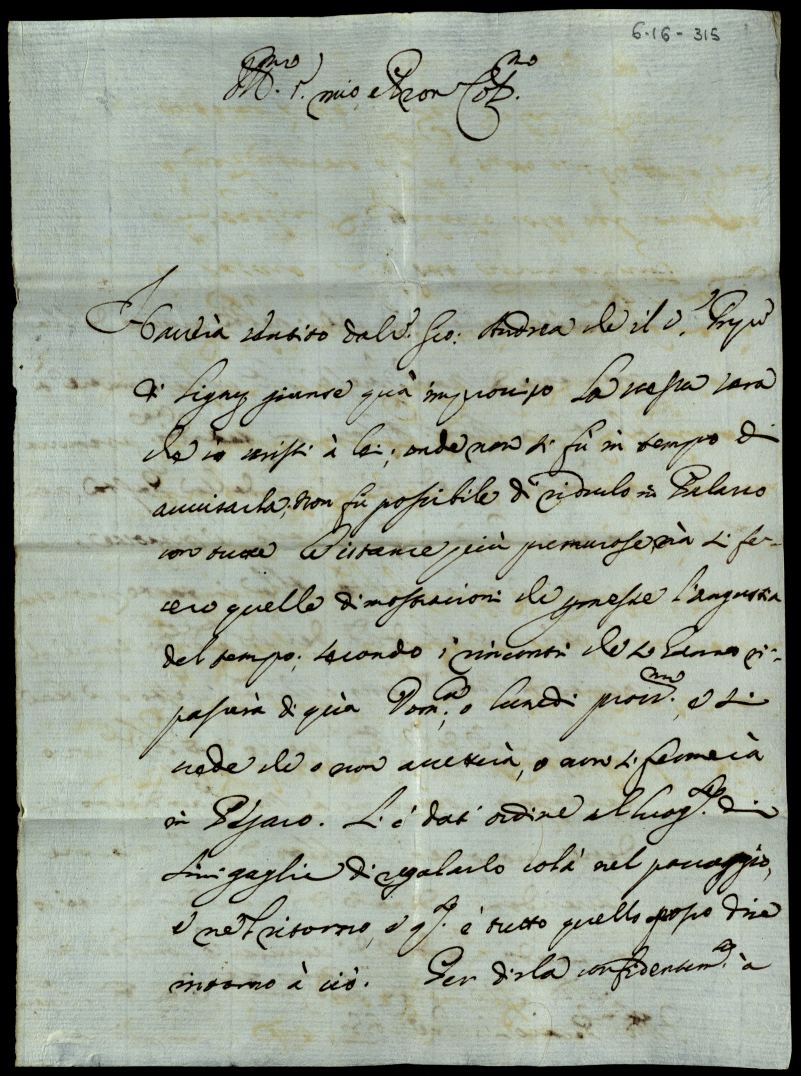 6-16-315
Ill.mo S.r mio e Pron Col.mo
Haverà sentito dal S.r Gio: Andrea che il S.r Prnpe
di Ligny giunse quà improviso la stessa sera
che io scrissi à lei, onde non si fù in tempo di
avvisarla, non fu possibile di ridurlo in Palazzo
con tutte le istanze più premurose mà si fe-
cero quelle dimostrazioni che permesse l'angustia
del tempo, secondo i rincontri che si hanno ri-
passarà di quà Dom.ca, o lunedi pross.mo, e si
vede che o non accetterà, o non si fermerà
in Pesaro. Si è dat' ordine al luog.te di
Sinigaglia di regalarlo colà nel passaggio,
e nel ritorno, e q.to è tutto quello posso dire
intorno à ciò. Per dirla confidentem.te à